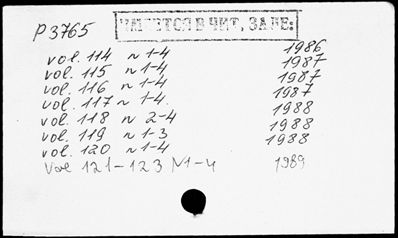 P 3765
ИМЕЕТСЯ В ЧИТ. ЗАЛЕ:
vol. 114 n 1-4 1986
vol. 115 n 1-4 1987
vol. 116 n 1-4 1987
vol. 117 n 1-4. 1987
vol. 118 n 2-4 1988
vol. 119 n 1-3 1988
vol. 120 n 1-4 1988
Vol 121-123 N1-4 1989